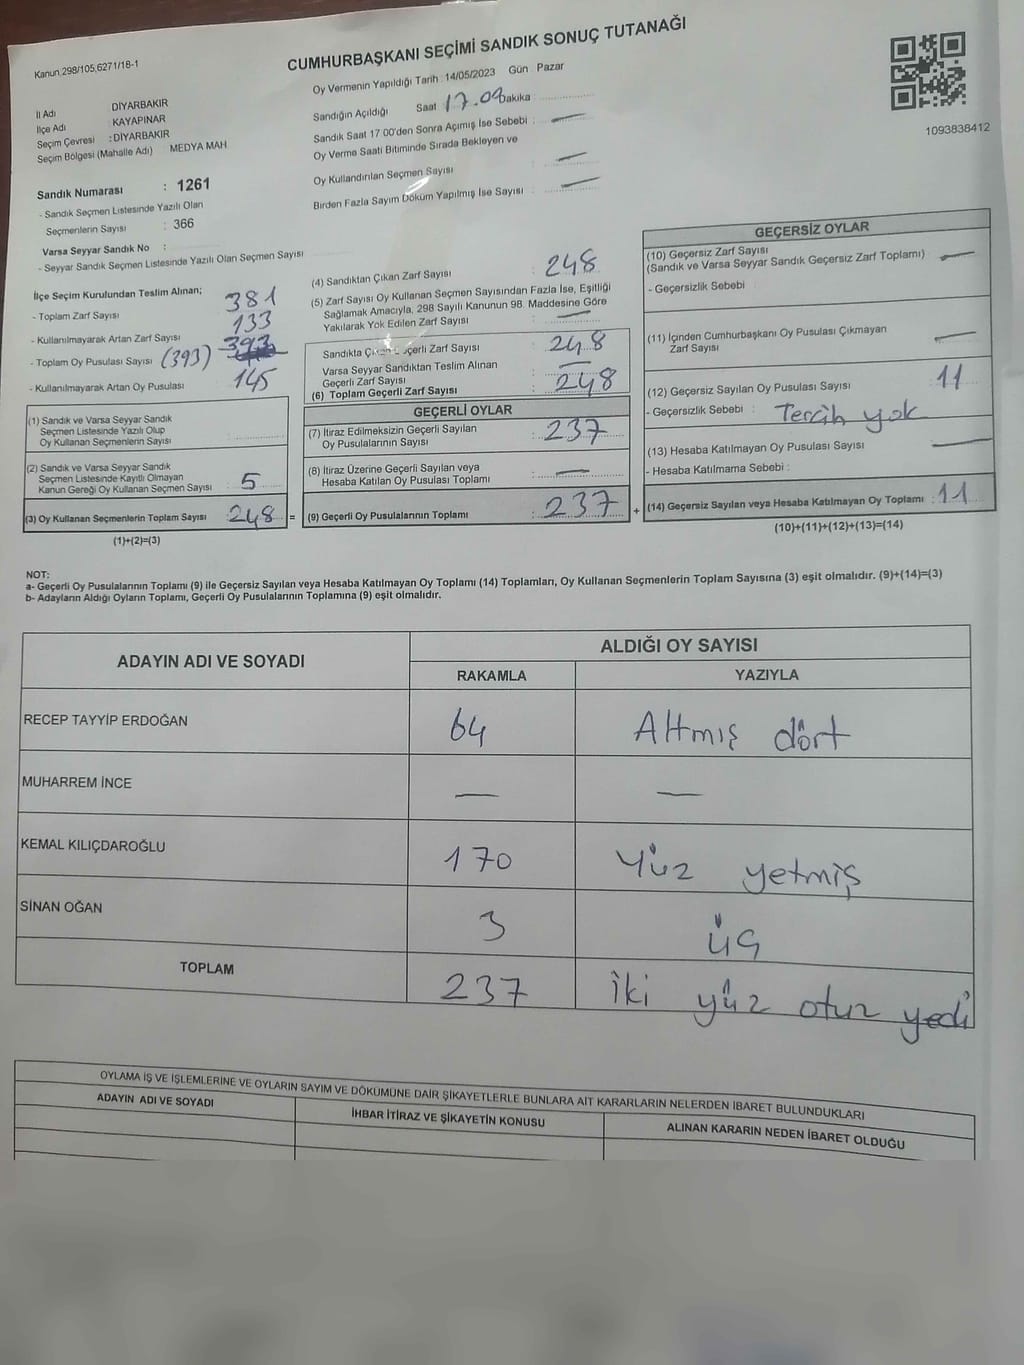 CUMHURBAŞKANI SEÇİMİ SANDIK SONUÇ TUTANAĞI
Kanun.298/105,6271/18-1
1093838412
İl Adı DİYARBAKIR
İlçe Adı KAYAPINAR
Seçim Çevresi : DİYARBAKIR
Seçim Bölgesi (Mahalle Adı) MEDYA MAH
Sandık Numarası : 1261
- Sandık Seçmen Listesinde Yazılı Olan
Seçmenlerin Sayısı : 366
Varsa Seyyar Sandık No :
- Seyyar Sandık Seçmen Listesinde Yazılı Olan Seçmen Sayısı
Oy Vermenin Yapıldığı Tarih : 14/05/2023 Gün Pazar
Sandığın Açıldığı Saat 17.09 Dakika :
Sandık Saat 17 00'den Sonra Açımış İse Sebebi : —
Oy Verme Saati Bitiminde Sırada Bekleyen ve
Oy Kullandırılan Seçmen Sayısı : —
Birden Fazla Sayım Döküm Yapılmış İse Sayısı : —
İlçe Seçim Kurulundan Teslim Alınan;
- Toplam Zarf Sayısı 381
- Kullanılmayarak Artan Zarf Sayısı 133
- Toplam Oy Pusulası Sayısı (393) 393
- Kullanılmayarak Artan Oy Pusulası 145
(1) Sandık ve Varsa Seyyar Sandık
Seçmen Listesinde Yazılı Olup
Oy Kullanan Seçmenlerin Sayısı :
(2) Sandık ve Varsa Seyyar Sandık
Seçmen Listesinde Kayıtlı Olmayan
Kanun Gereği Oy Kullanan Seçmen Sayısı : 5
(3) Oy Kullanan Seçmenlerin Toplam Sayısı : 248 =
(1)+(2)=(3)
(4) Sandıktan Çıkan Zarf Sayısı : 248
(5) Zarf Sayısı Oy Kullanan Seçmen Sayısından Fazla İse, Eşitliği
Sağlamak Amacıyla, 298 Sayılı Kanunun 98. Maddesine Göre
Yakılarak Yok Edilen Zarf Sayısı : —
Sandıkta Geçerli Zarf Sayısı : 248
Varsa Seyyar Sandıktan Teslim Alınan
Geçerli Zarf Sayısı : —
(6) Toplam Geçerli Zarf Sayısı : 248
GEÇERLİ OYLAR
(7) İtiraz Edilmeksizin Geçerli Sayılan
Oy Pusulalarının Sayısı : 237
(8) İtiraz Üzerine Geçerli Sayılan veya
Hesaba Katılan Oy Pusulası Toplamı : —
(9) Geçerli Oy Pusulalarının Toplamı : 237 +
GEÇERSİZ OYLAR
(10) Geçersiz Zarf Sayısı
(Sandık ve Varsa Seyyar Sandık Geçersiz Zarf Toplamı) : —
- Geçersizlik Sebebi :
(11) İçinden Cumhurbaşkanı Oy Pusulası Çıkmayan
Zarf Sayısı : —
(12) Geçersiz Sayılan Oy Pusulası Sayısı : 11
- Geçersizlik Sebebi : Tercih yok
(13) Hesaba Katılmayan Oy Pusulası Sayısı : —
- Hesaba Katılmama Sebebi :
(14) Geçersiz Sayılan veya Hesaba Katılmayan Oy Toplamı : 11
(10)+(11)+(12)+(13)=(14)
NOT:
a- Geçerli Oy Pusulalarının Toplamı (9) ile Geçersiz Sayılan veya Hesaba Katılmayan Oy Toplamı (14) Toplamları, Oy Kullanan Seçmenlerin Toplam Sayısına (3) eşit olmalıdır. (9)+(14)=(3)
b- Adayların Aldığı Oyların Toplamı, Geçerli Oy Pusulalarının Toplamına (9) eşit olmalıdır.
ADAYIN ADI VE SOYADI ALDIĞI OY SAYISI
RAKAMLA YAZIYLA
RECEP TAYYİP ERDOĞAN 64 Altmış dört
MUHARREM İNCE — —
KEMAL KILIÇDAROĞLU 170 Yüz yetmiş
SİNAN OĞAN 3 üç
TOPLAM 237 İki yüz otuz yedi
OYLAMA İŞ VE İŞLEMLERİNE VE OYLARIN SAYIM VE DÖKÜMÜNE DAİR ŞİKAYETLERLE BUNLARA AİT KARARLARIN NELERDEN İBARET BULUNDUKLARI
ADAYIN ADI VE SOYADI İHBAR İTİRAZ VE ŞİKAYETİN KONUSU ALINAN KARARIN NEDEN İBARET OLDUĞU